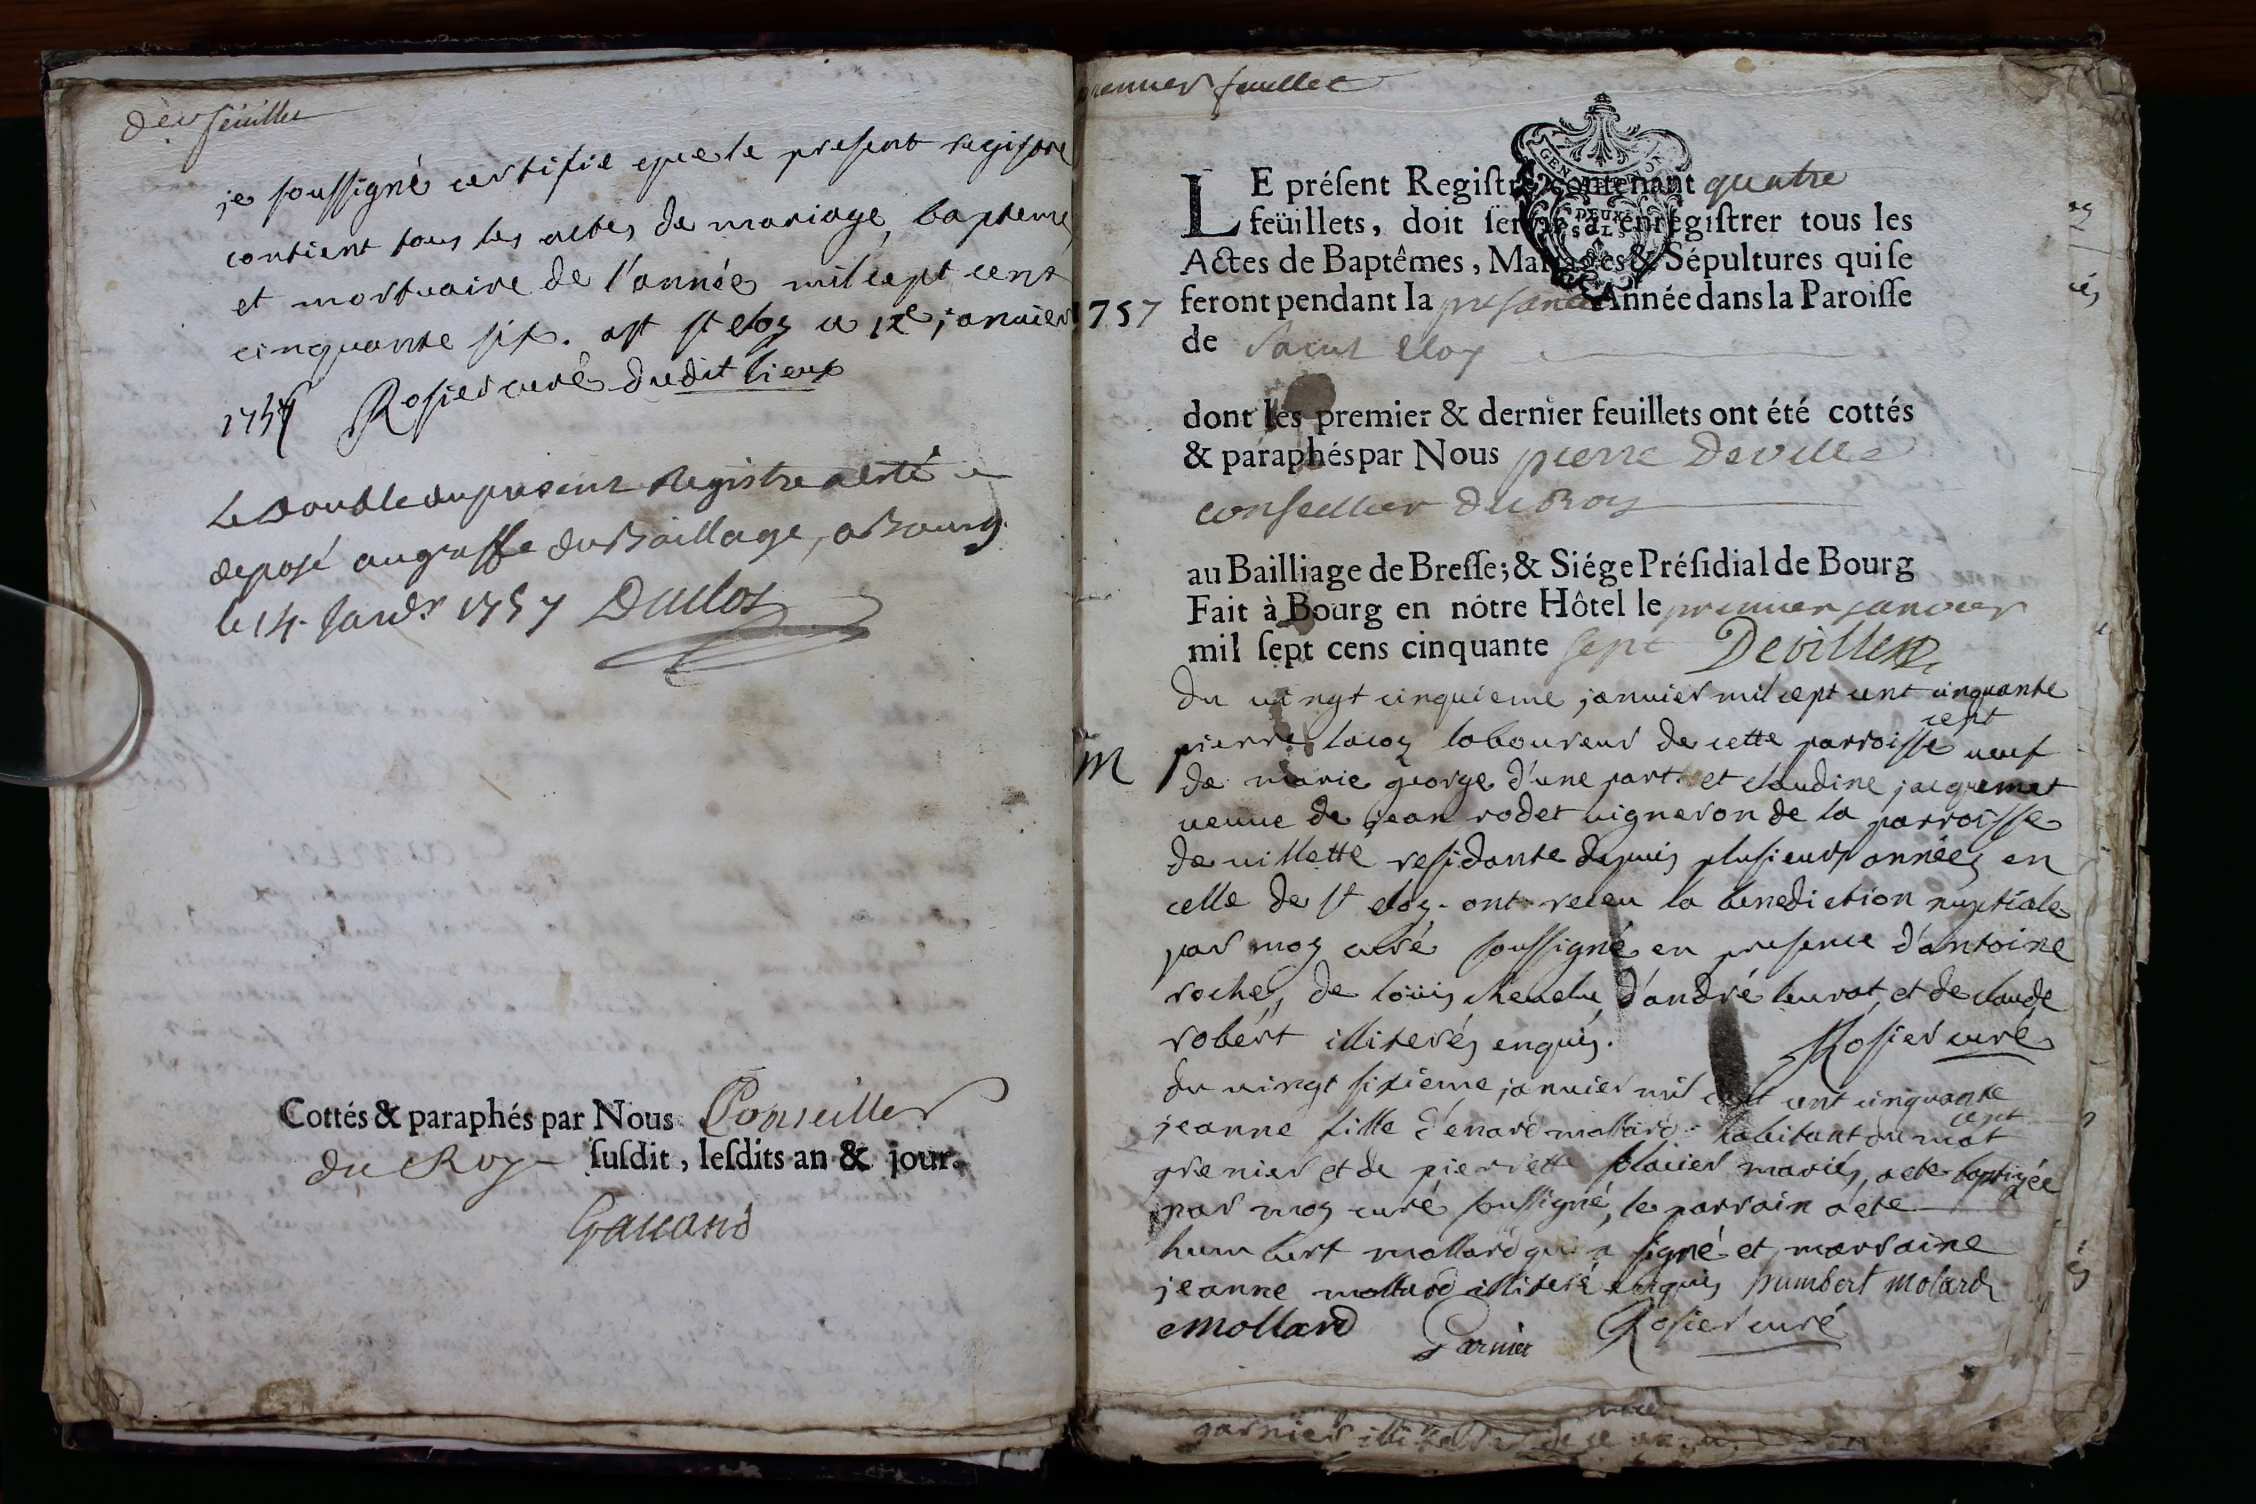 der feuillet
je soussigné certifie que le present registre
contient tous les actes de mariage, bapteme,
et mortuaire de l'année mil cept cent
cinquante six. a st eloy ce 12e janvier
1757 Rosier curé dudit lieux
Le Double du present Registre a esté
deposé au greffe du Baillage, a Bourg
le 14. Janvr 1757 Duclos
Cottés & paraphés par Nous Conseiller
du Roy ſuſdit, leſdits an & jour.
premier feuillet
GEN
DEUX
SOLS
LE préſent Regiſtre contenant quatre
feüillets, doit ſervir à enregiſtrer tous les
Actes de Baptêmes, Mariages & Sépultures qui ſe
1757 feront pendant la presante Année dans la Paroiſſe
de Saint Eloy
dont les premier & dernier feuillets ont été cottés
& paraphés par Nous pierre Deville
conseiller du Roy
au Bailliage de Breſſe; & Siége Préſidial de Bourg
Fait à Bourg en nôtre Hôtel le premier janvier
mil ſept cens cinquante sept Deville
du vingt cinquieme janvier mil cept cent cinquante
cept
M pierre lacoy laboureur de cette parroisse veuf
de marie george d'une part et claudine jacquemet
veuve de jean rodet vigneron de la parroisse
de villette residante depuis plusieurs années en
celle de st eloy. ont receu la benediction nuptiale
par moy curé soussigné en presence d'antoine
roche, de loüis d'andré leurat, et de claude
robért illiterés enquis. Rosier curé
du vingt sixieme janvier mil cept cent cinquante
cept
jeanne fille d'enard mollard habitant du mat
grenier et de pierrette mariés, a ete baptizée
par moy curé soussigné, le parrain a ete
humbert mollard qui a signé et marraine
jeanne mollard illiteré enquis humbert molard
Mollard Garnier Rosier curé
garnier